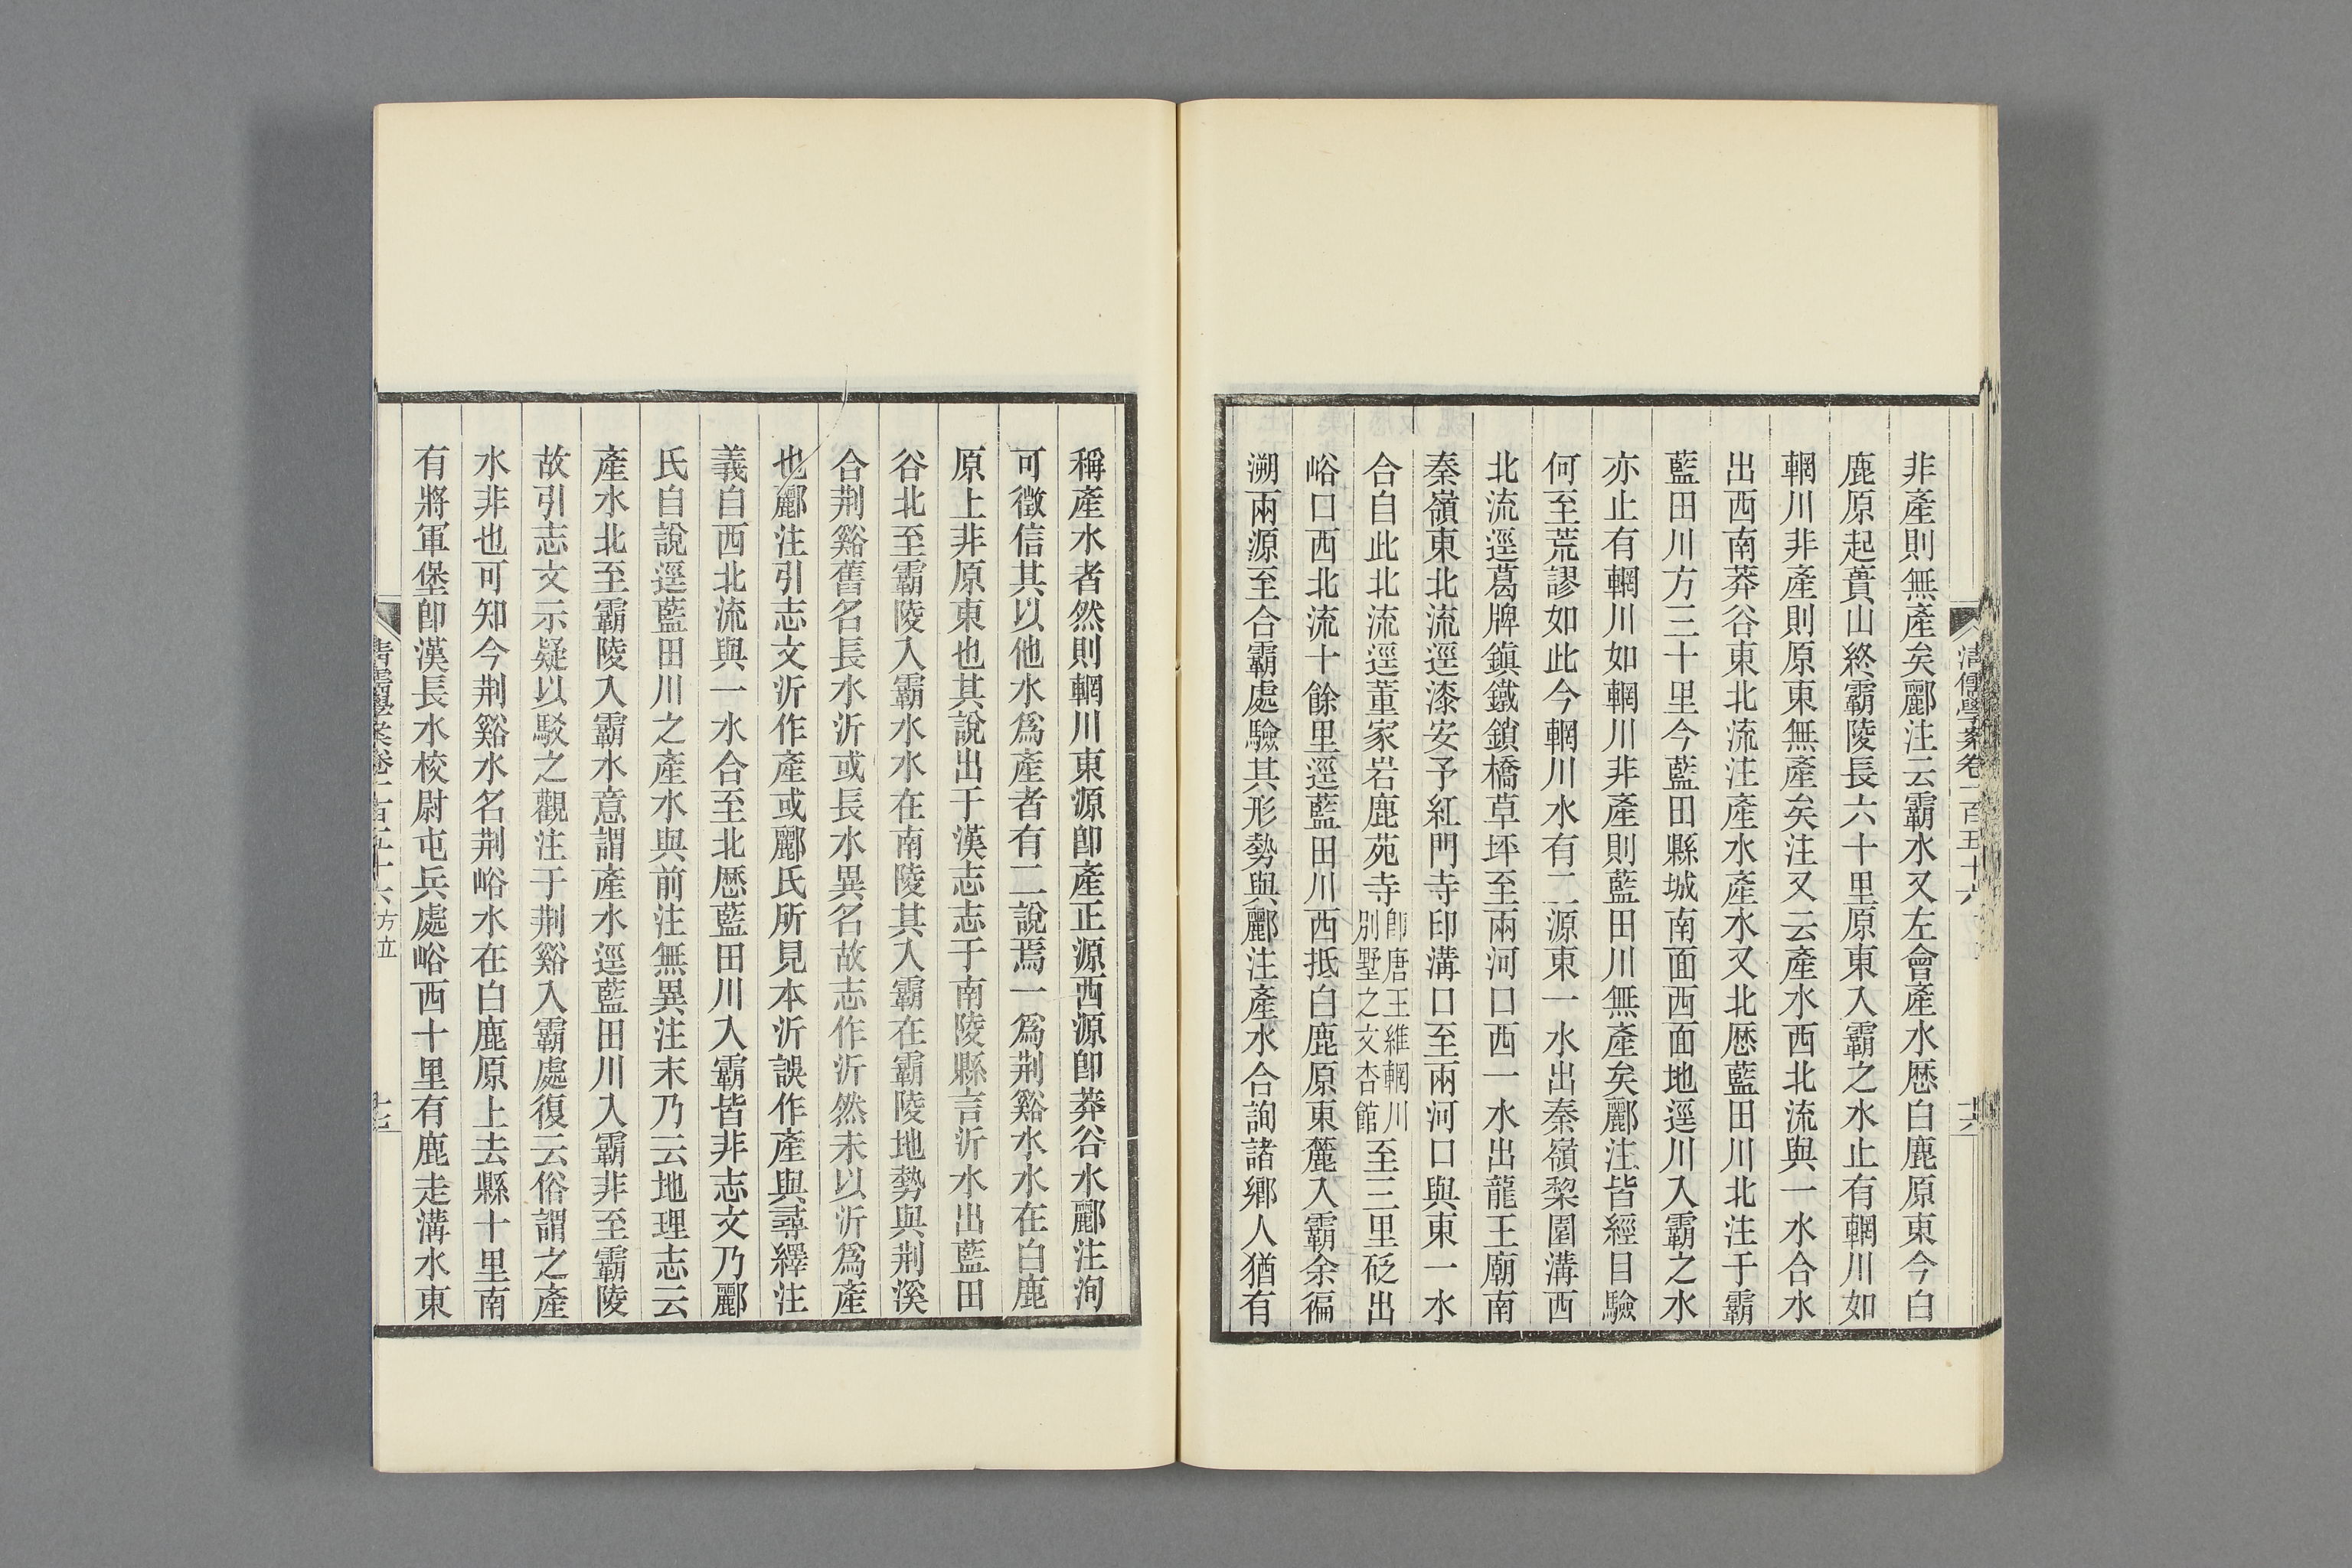 清儒學案卷一百五十六
十六
非產則無產矣酈注云霸水又左會產水歷白鹿原東今白
鹿原起蕢山終霸陵長六十里原東入霸之水止有輞川如
輞川非產則原東無產矣注又云產水西北流與一水合水
出西南莽谷東北流注產水產水又北歷藍田川北注于霸
藍田川方三十里今藍田縣城南面西面地逕川入霸之水
亦止有輞川如輞川非產則藍田川無產矣酈注皆經目驗
何至荒謬如此今輞川水有二源東一水出秦嶺棃園溝西
北流逕葛牌鎮鐵鎖橋草坪至兩河口西一水出龍王廟南
秦嶺東北流逕漆安予紅門寺印溝口至兩河口與東一水
合自此北流逕董家岩鹿苑寺卽唐王維輞川別墅之文杏館至三里砭出
峪口西北流十餘里逕藍田川西抵白鹿原東麓入霸余徧
溯兩源至合霸處驗其形勢與酈注產水合詢諸鄉人猶有
稱產水者然則輞川東源卽產正源西源卽莽谷水酈注洵
可徵信其以他水爲產者有二說焉一爲荆谿水水在白鹿
原上非原東也其說出于漢志志于南陵縣言沂水出藍田
谷北至霸陵入霸水水在南陵其入霸在霸陵地勢與荆溪
合荆谿舊名長水沂或長水異名故志作沂然未以沂爲產
也酈注引志文沂作產或酈氏所見本沂誤作產與尋繹注
義自西北流與一水合至北歷藍田川入霸皆非志文乃酈
氏自說逕藍田川之產水與前注無異注末乃云地理志云
產水北至霸陵入霸水意謂產水逕藍田川入霸非至霸陵
故引志文示疑以駁之觀注于荆谿入霸處復云俗謂之產
水非也可知今荆谿水名荆峪水在白鹿原上去縣十里南
有將軍堡卽漢長水校尉屯兵處峪西十里有鹿走溝水東
清儒學案卷一百五十六 方立
十七